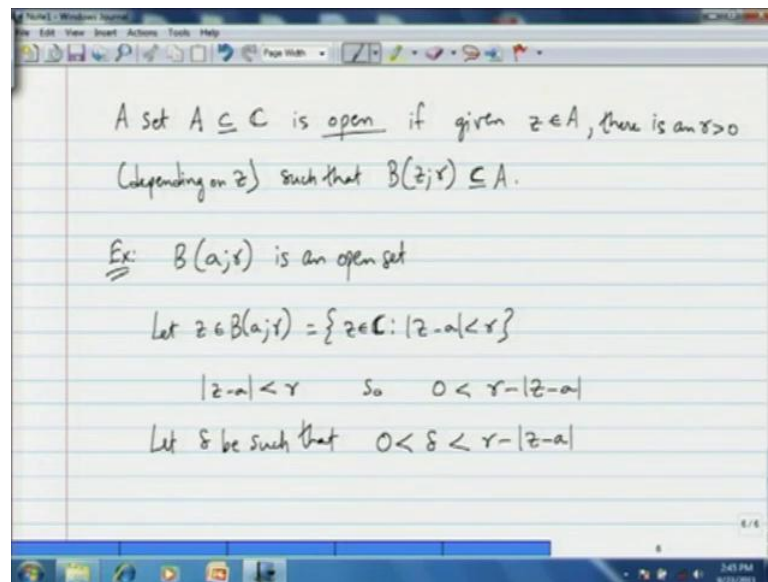 Note1 - Windows Journal
File Edit View Insert Actions Tools Help
Page Width
A set A ⊆ ℂ is open if given z ∈ A, there is an r>0
(depending on z) such that B(z;r) ⊆ A.
Ex: B(a;r) is an open set
Let z ∈ B(a;r) = {z ∈ ℂ: |z-a|<r}
|z-a| < r So 0 < r-|z-a|
Let δ be such that 0 < δ < r-|z-a|
6/6
8
2:45 PM